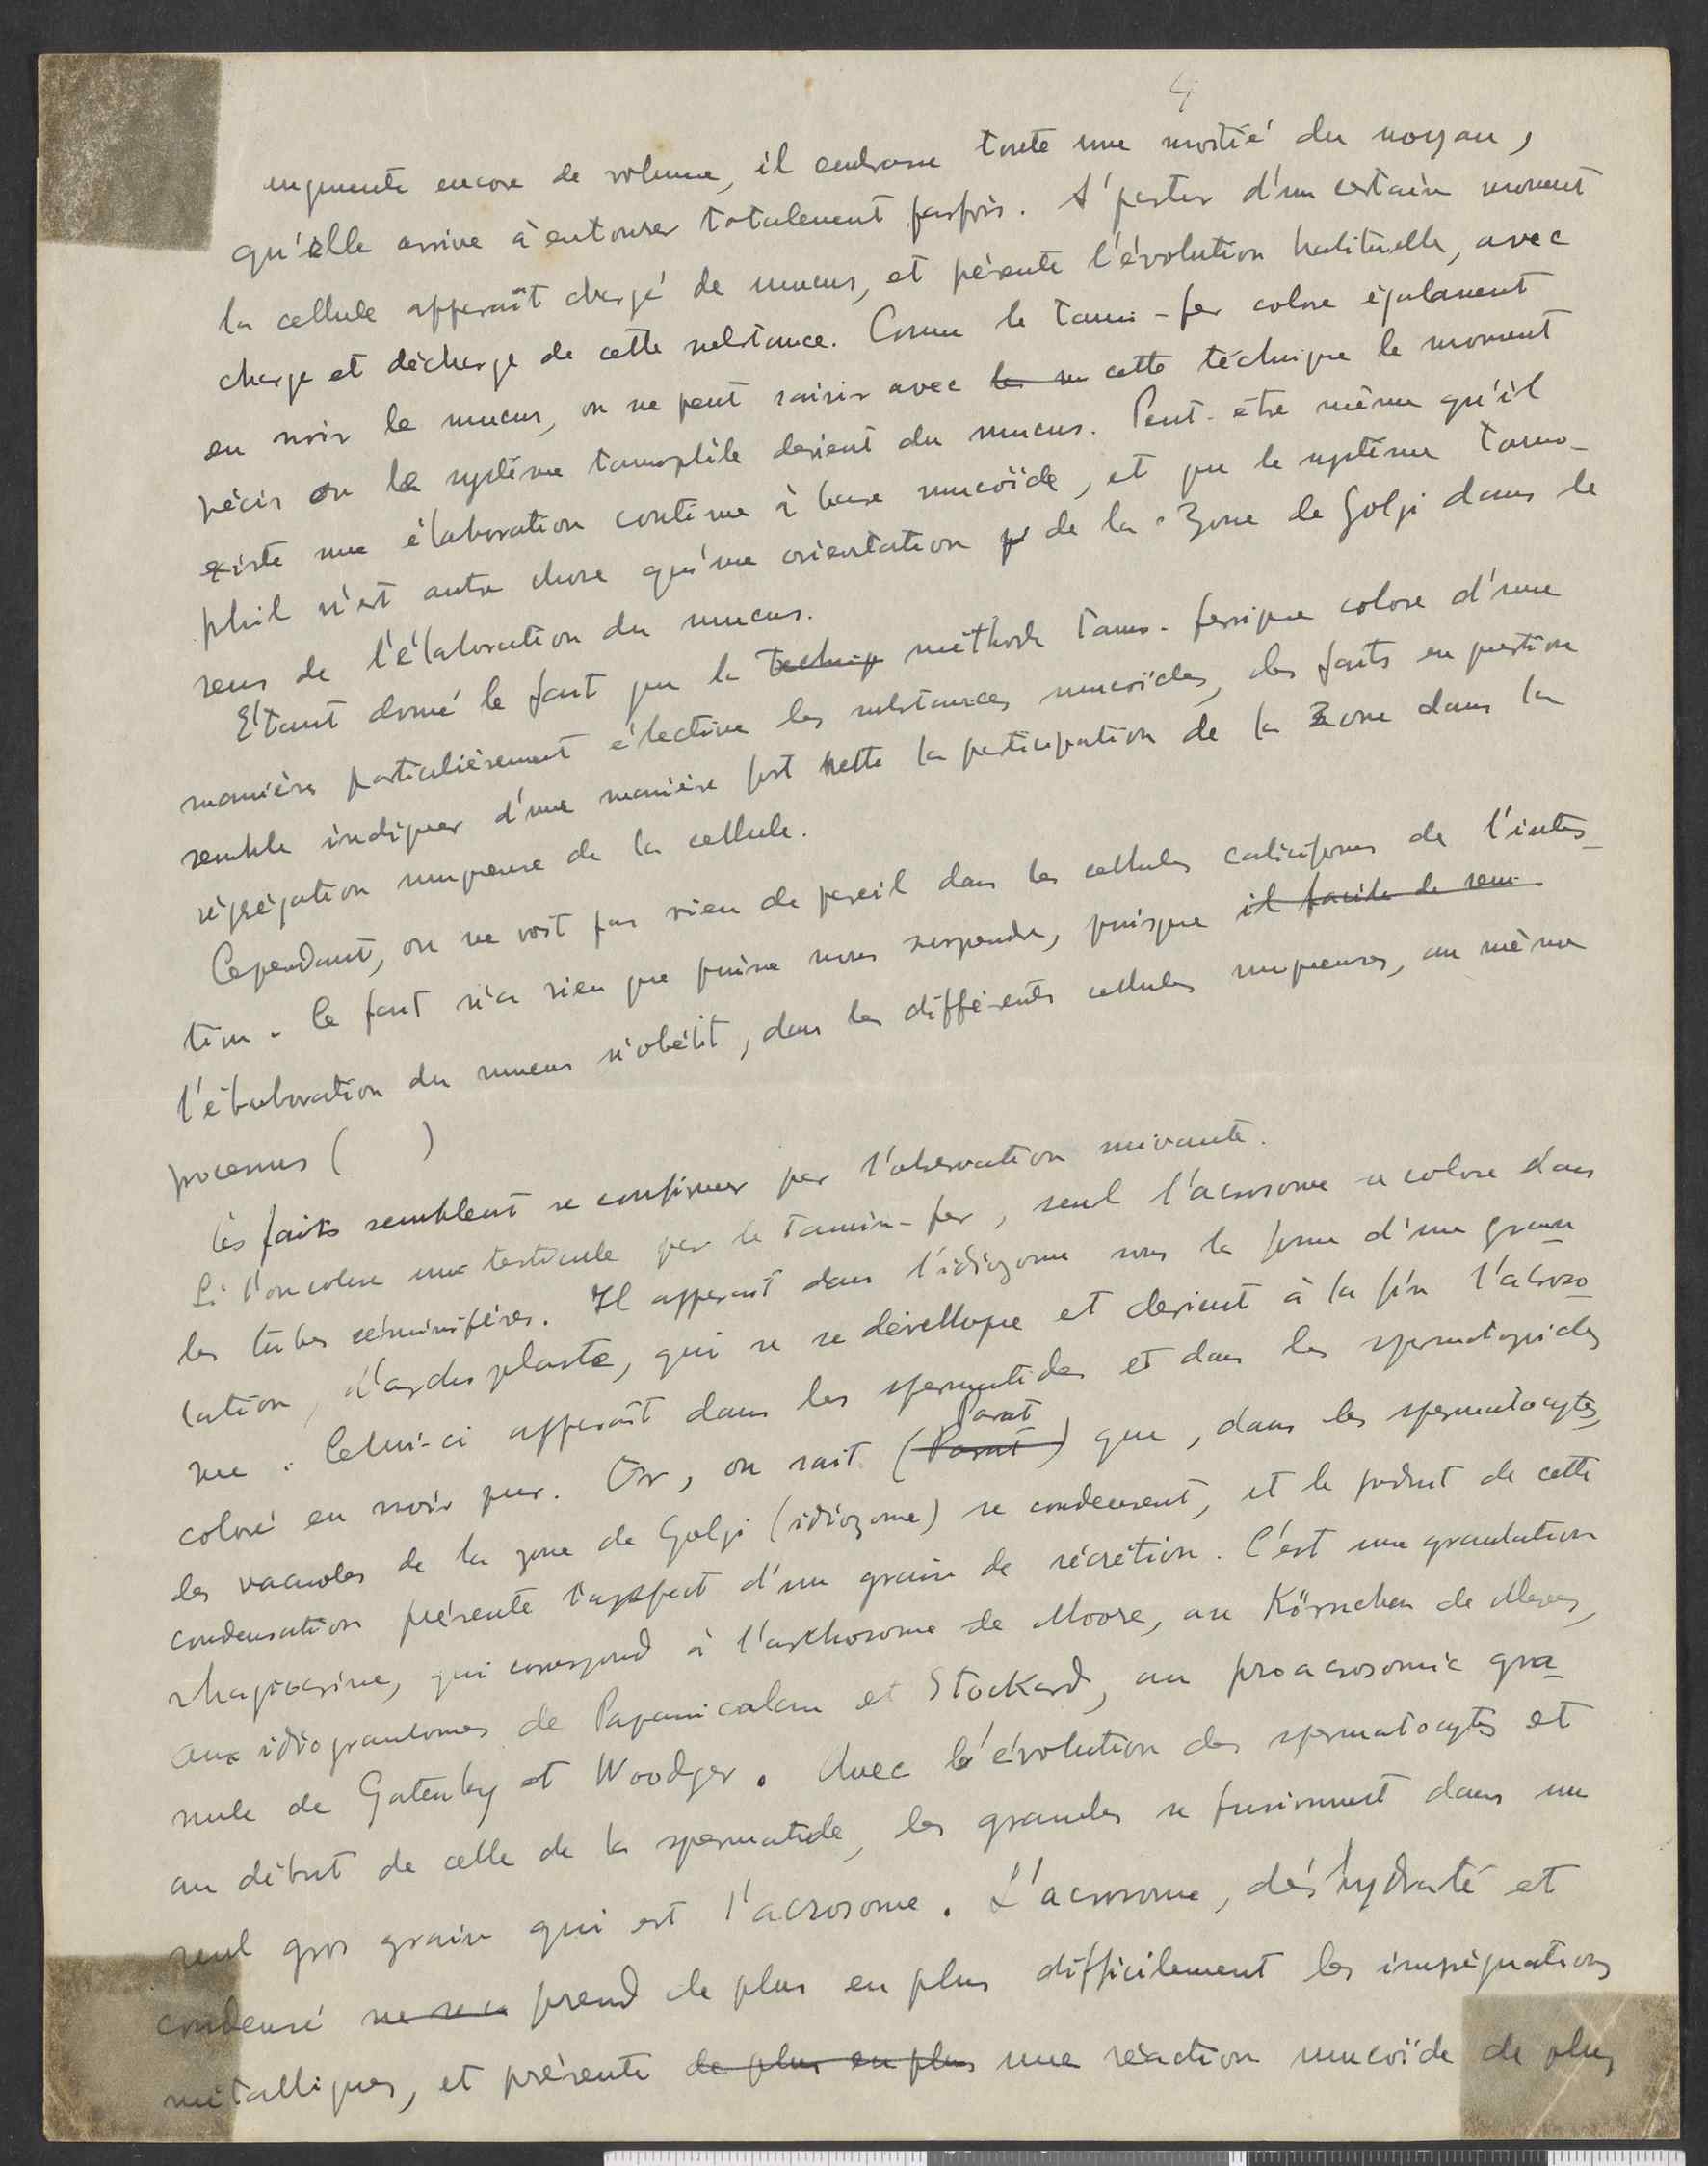 4
augmente encore de volume, il embrasse toute une moitié du noyau,
qu'elle arrive à entourer totalement parfois. A partir d'un certain moment
la cellule apparaît chargé de mucus, et présente l'évolution habituelle, avec
charge et décharge de cette substance. Comme le tanin-fer colore également
en noir le mucus, on ne peut saisir avec cette téchnique le moment
précis où le système tanophile devient du mucus. Peut-etre même qu'il
existe une élaboration continue à base mucoïde, et que le système tano-
phil n'est autre chose qu'une orientation de la Zone de Golgi dans le
sens de l'élaboration du mucus.
Etant donné le fait que la techniq méthode tano-ferrique colore d'une
manière particulièrement élective les substances mucoïdes, les faits en question
semble indiquer d'une manière fort nette la participation de la Zone dans la
ségrégation muqueuse de la cellule.
Cependant, on ne voit pas rien de pareil dans les cellules caliciformes de l'intes-
tin. Ce fait n'a rien que puisse nous surprendre, puisque il facile de
l'élaboration du mucus n'obéit, dans les différents cellules muqueuses, au même
processus ( )
Ces faits semblent se confirmer par l'observation suivante.
Si l'on colore une testicule par le tannin-fer, seul l'acrosome se colore dans
les tubes séminifères. Il apparait dans l'idiozome sous la forme d'une granu
lation, qui se se dévellope et devient à la fin l'acroso
me. Celui-ci apparaît dans les spermatides et dans les spermatozoides
coloré en noir pur. Or, on sait (Parat) Parat que, dans les spermatocytes,
les vacuoles de la zone de Golgi (idiozome) se condensent, et le produit de cette
condensation présente l'aspect d'un grain de sécrétion. C'est une granulation
rhagiocrine, qui correspond à l'archosome de Moore, au Körnchen de Meves,
aux idiogranulomes de Papanicolau et Stockard, au proacrosomic gra-
nule de Gatenby et Woodger. Avec l'évolution des spermatocytes et
au début de celle de la spermatide, les granules se fusionnent dans un
seul gros grain qui est l'acrosome. L'acrosome, déshydraté et
condensé prend de plus en plus difficilement les imprégnations
métalliques, et présente de plus en plus une réaction mucoïde de plus